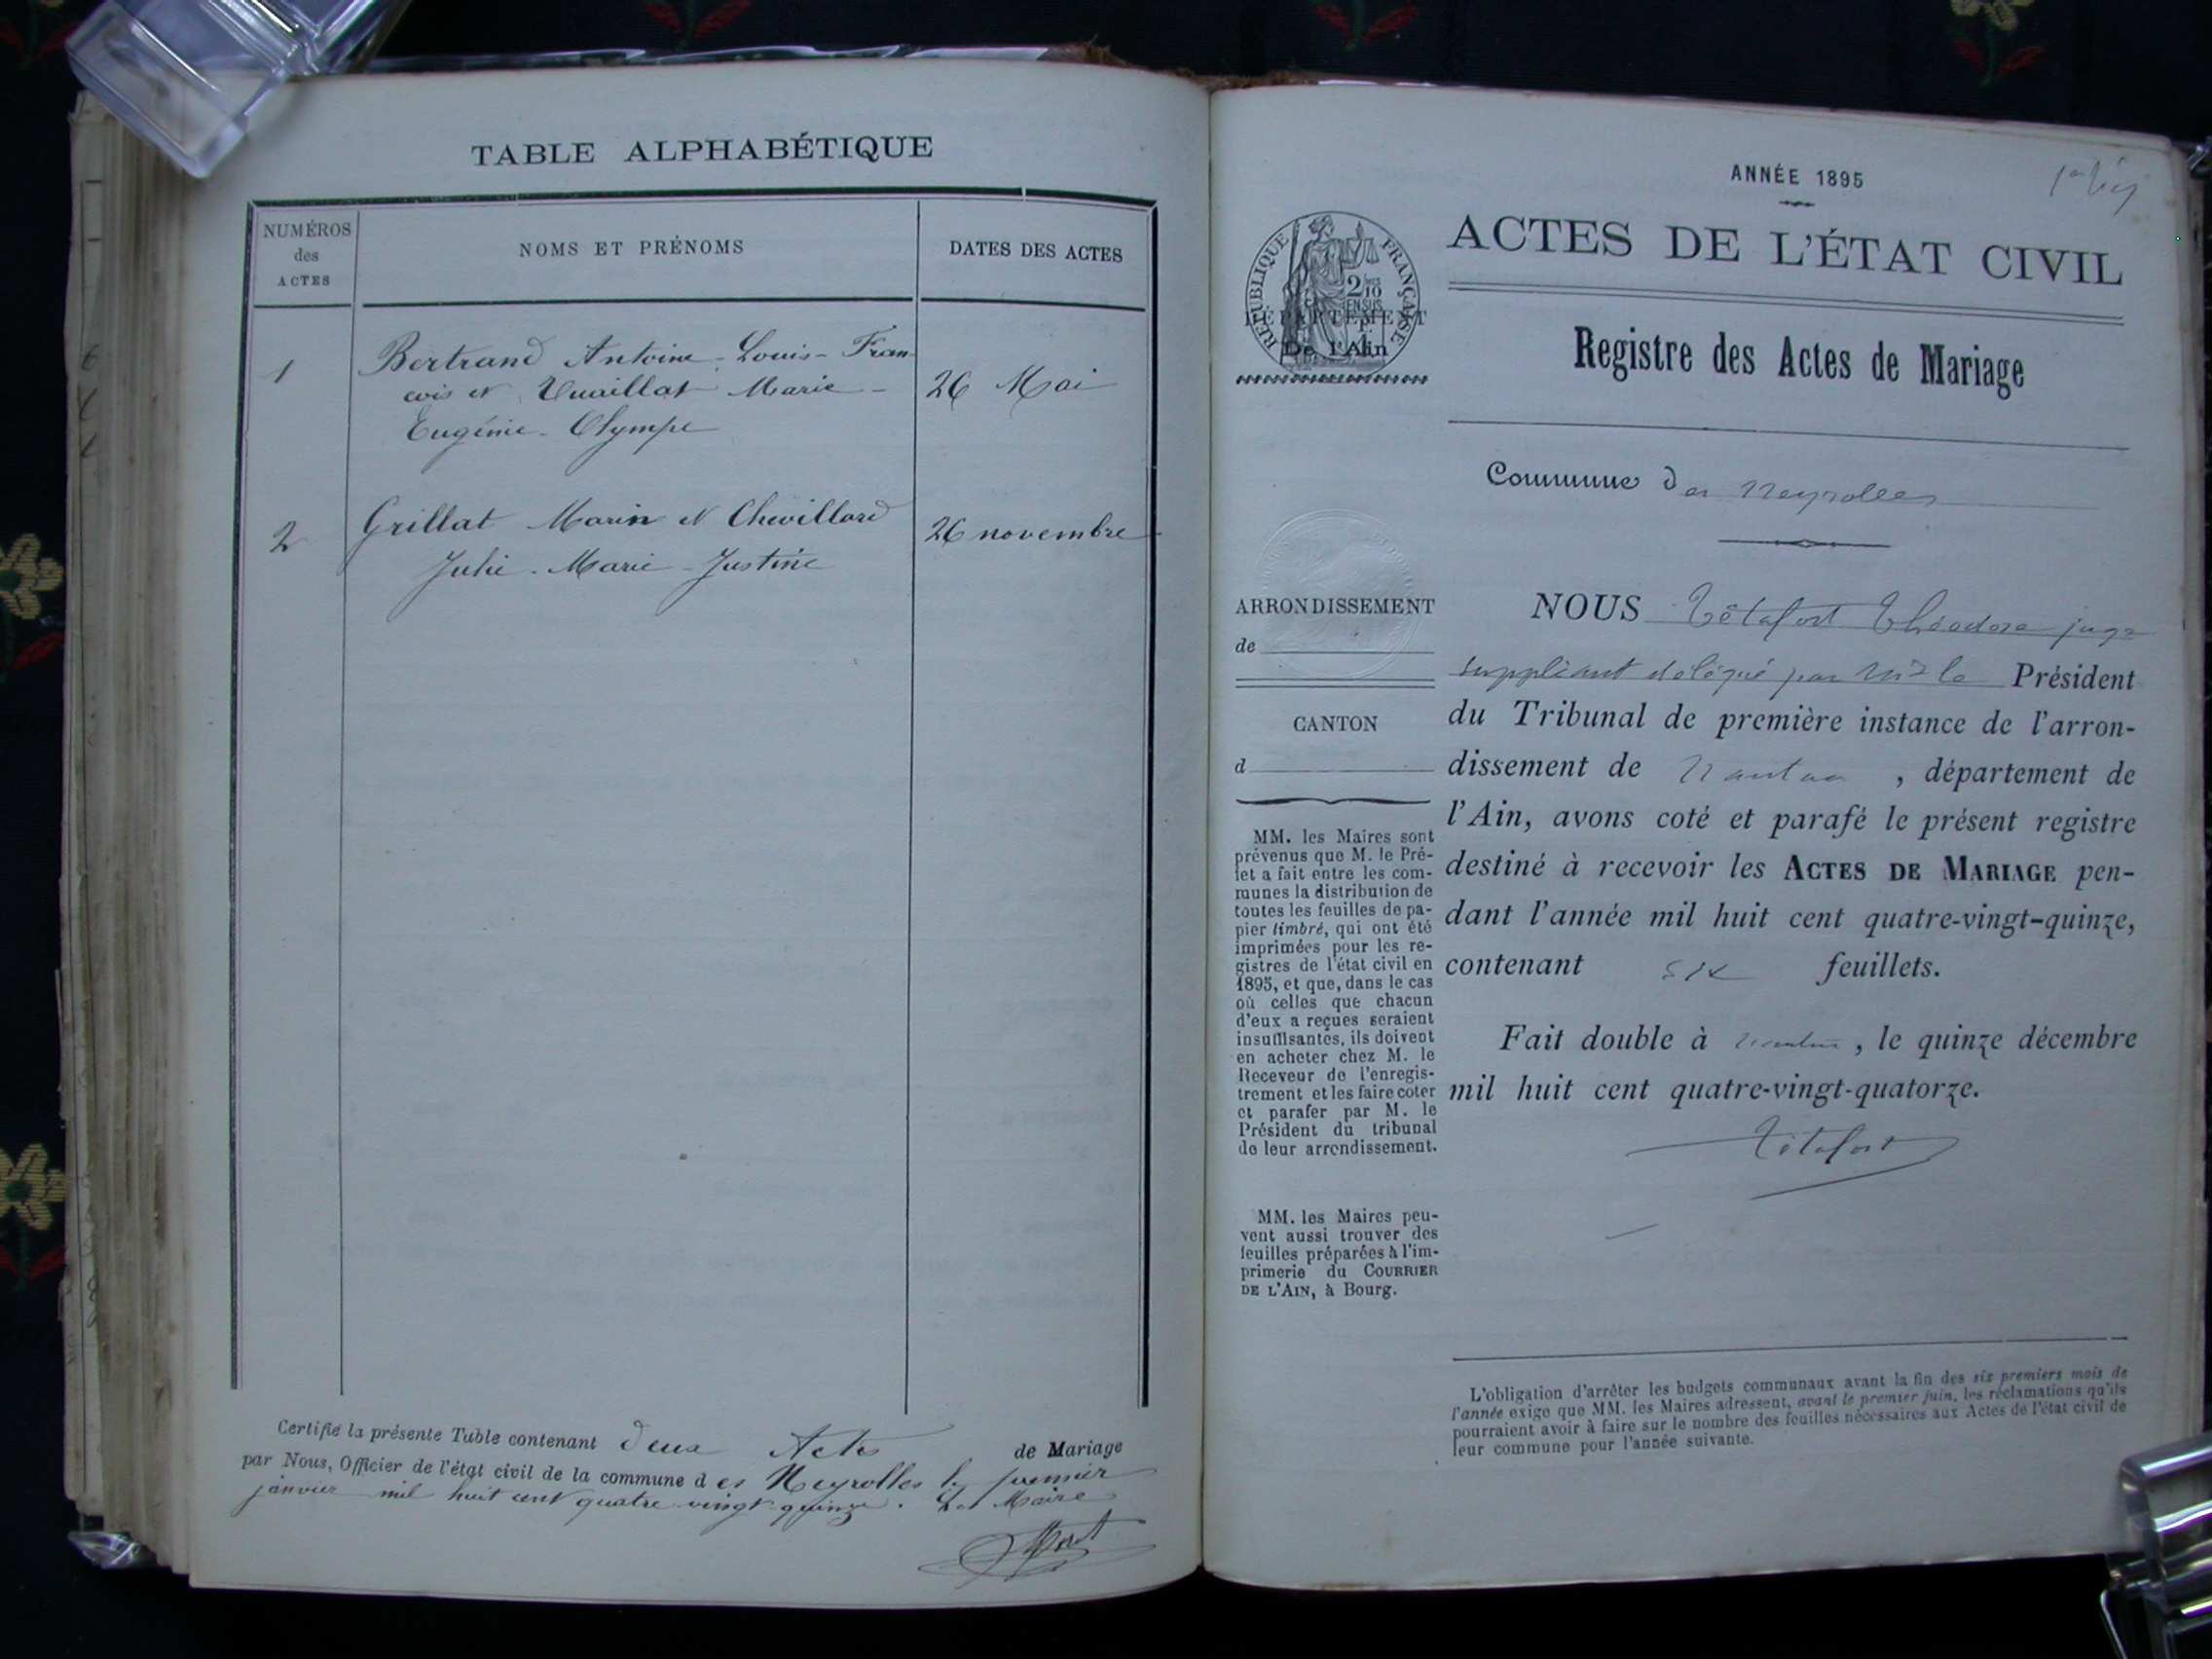 TABLE ALPHABÉTIQUE
NUMÉROS
des
ACTES
NOMS ET PRÉNOMS
DATES DES ACTES
1
Bertrand Antoine - Louis - Fran-
çois et Vuaillat Marie -
Eugénie - Olympe
26 Mai
2
Grillat Marin et Chevillard
Julie - Marie - Justine
26 novembre
Certifié la présente Table contenant deux Actes de Mariage
par Nous, Officier de l'état civil de la commune d es Neyrolles le premier
janvier mil huit cent quatre vingt quinze. Le Maire
ANNÉE 1895
ACTES DE L'ÉTAT CIVIL
Registre des Actes de Mariage
RÉPUBLIQUE FRANÇAISE
2
10
EN SUS
DÉPARTEMENT
De l'Ain
Commune des Neyrolles
ARRONDISSEMENT
de
CANTON
d
MM. les Maires sont
prévenus que M. le Pré-
fet a fait entre les com-
munes la distribution de
toutes les feuilles de pa-
pier timbré, qui ont été
imprimées pour les re-
gistres de l'état civil en
1895, et que, dans le cas
où celles que chacun
d'eux a reçues seraient
insuffisantes, ils doivent
en acheter chez M. le
Receveur de l'enregis-
trement et les faire coter
et parafer par M. le
Président du tribunal
de leur arrondissement.
MM. les Maires peu-
vent aussi trouver des
feuilles préparées à l'im-
primerie du COURRIER
DE L'AIN, à Bourg.
NOUS Tétafort Théodore juge
suppléant délégué par Mr le Président
du Tribunal de première instance de l'arron-
dissement de Nantua , département de
l'Ain, avons coté et parafé le présent registre
destiné à recevoir les ACTES DE MARIAGE pen-
dant l'année mil huit cent quatre-vingt-quinze,
contenant six feuillets.
Fait double à Nantua, le quinze décembre
mil huit cent quatre-vingt-quatorze.
Tétafort
L'obligation d'arrêter les budgets communaux avant la fin des six premiers mois de
l'année exige que MM. les Maires adressent, avant le premier juin, les réclamations qu'ils
pourraient avoir à faire sur le nombre des feuilles nécessaires aux Actes de l'état civil de
leur commune pour l'année suivante.